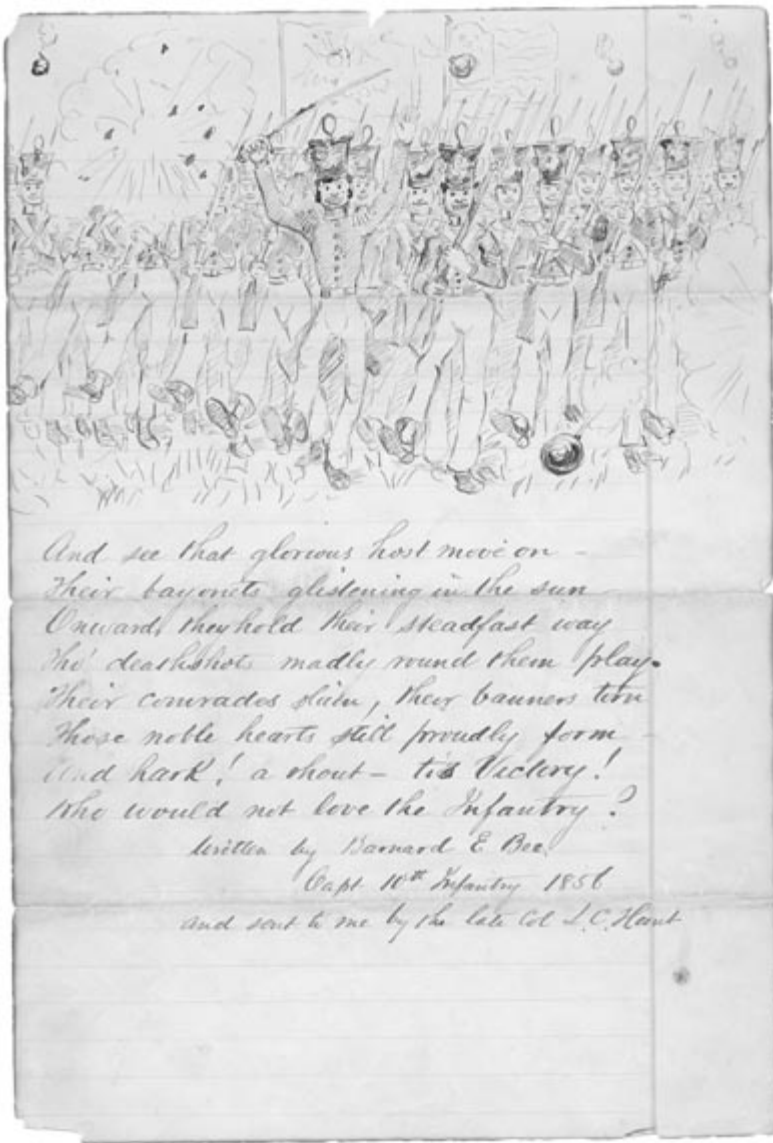 And see that glorious host move on -
Their bayonets glistening in the sun
Onward, they hold their steadfast way
Tho' deathshots madly round them play.
Their comrades slain, their banners torn
Those noble hearts still proudly form -
And hark! a shout - tis Victory!
Who would not love the Infantry?
Written by Barnard E Bee.
Capt 10th Infantry 1856
and sent to me by the late Col L.C. Hunt